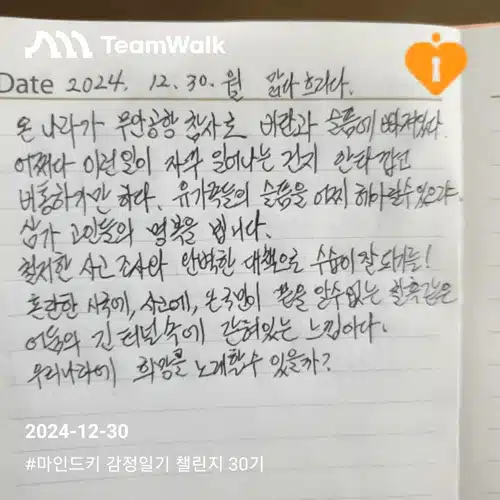 TeamWalk
Date 2024. 12. 30. 월 맑다 흐리다.
온 나라가 무안공항 참사로 비탄과 슬픔에 빠져있다.
어쩌다 이런일이 자꾸 일어나는 건지 안타깝고
비통하기만 하다. 유가족들의 슬픔을 어찌 헤아릴수 있으랴.
삼가 고인들의 명복을 빕니다.
철저한 사고 조사와 완벽한 대책으로 수습이 잘 되기를!
혼란한 시국에, 사고에, 온국민이 끝을 알수없는 칠흑같은
어둠의 긴 터널 속에 갇혀있는 느낌이다.
우리나라에 희망을 노래할수 있을까?
2024-12-30
#마인드키 감정일기 챌린지 30기